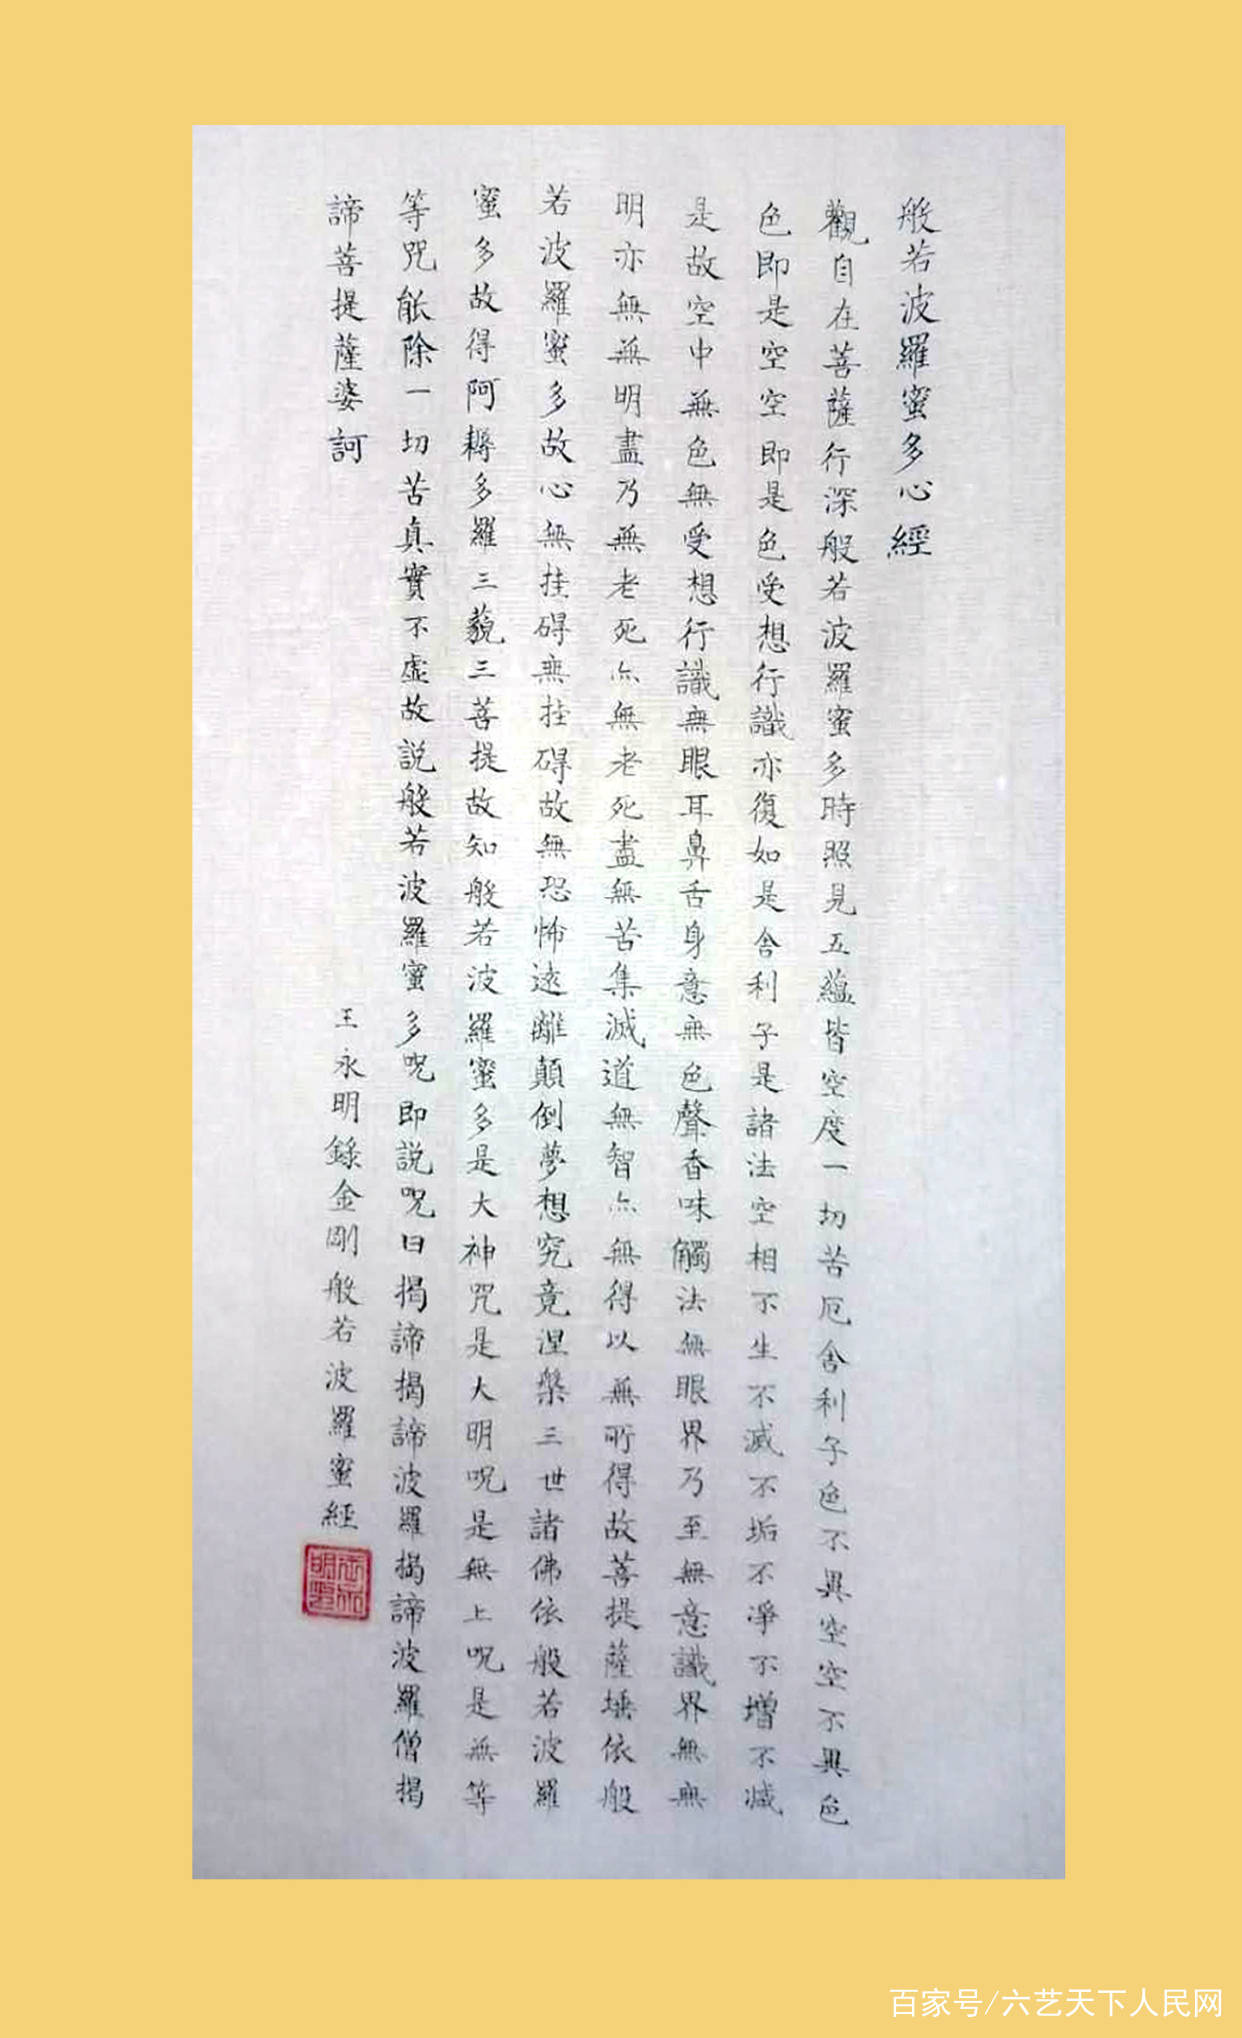 般若波羅蜜多心經
觀自在菩薩行深般若波羅蜜多時照見五蘊皆空度一切苦厄舍利子色不異空空不異色
色即是空空即是色受想行識亦復如是舍利子是諸法空相不生不滅不垢不淨不增不減
是故空中無色無受想行識無眼耳鼻舌身意無色聲香味觸法無眼界乃至無意識界無無
明亦無無明盡乃無老死亦無老死盡無苦集滅道無智亦無得以無所得故菩提薩埵依般
若波羅蜜多故心無挂碍無挂碍故無恐怖遠離顛倒夢想究竟涅槃三世諸佛依般若波羅
蜜多故得阿耨多羅三藐三菩提故知般若波羅蜜多是大神咒是大明呪是無上呪是無等
等咒能除一切苦真實不虛故説般若波羅蜜多呪即説呪曰揭諦揭諦波羅揭諦波羅僧揭
諦菩提薩婆訶
王永明錄金剛般若波羅蜜經
百家号/六艺天下人民网